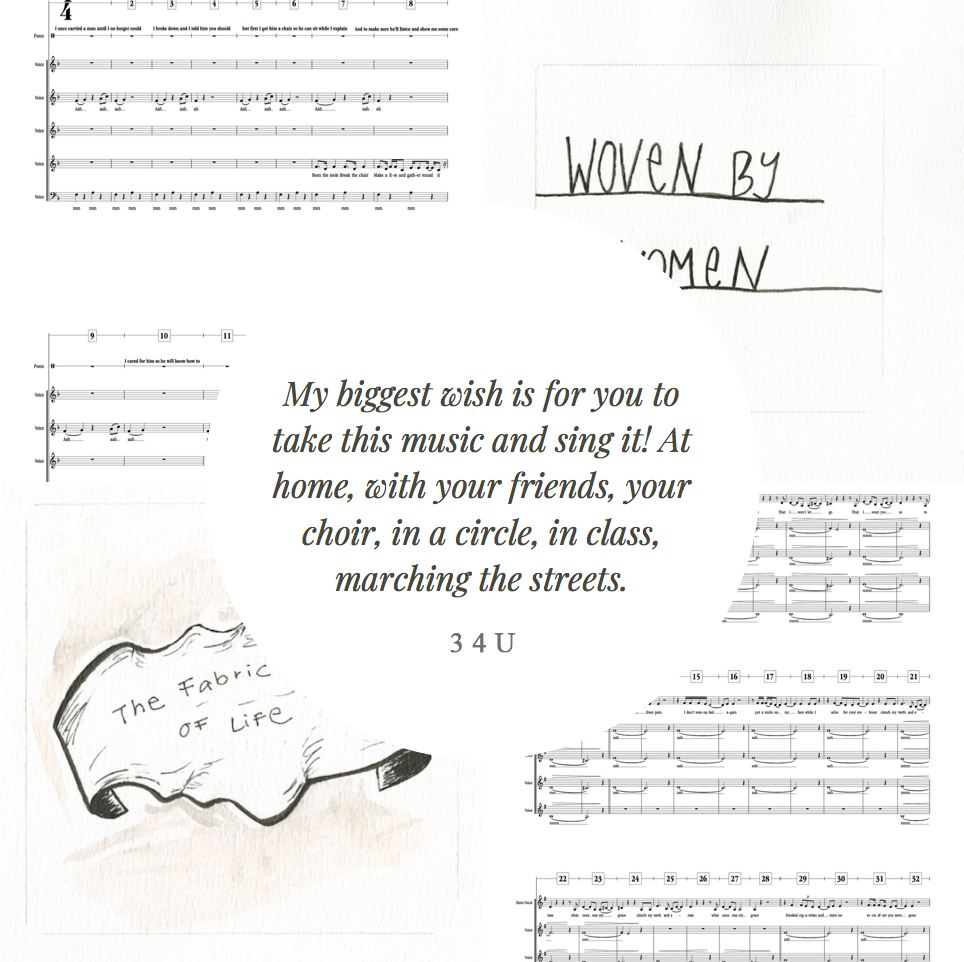 4
2 3 4 5 6 7 8
I once carried a man until I no longer could I broke down and I told him you should but first I got him a chair so he can sit while I explain And to make sure he'll listen and show me some care
Poem
Voice
Voice
Aah... aah.. aah... Aah... aah. ah Aah... aah.. aah... Aah... aah. ah
Voice
Voice
Burn the tools Break the chair Make a fi-re and gath-er round it
Voice
mm mm mm mm mm mm mm mm mm mm mm mm mm mm
WOVEN BY
WOMEN
9 10 11
I cared for him so he will know how to
Poem
Voice
Voice
Aah aah. aah...
Voice
My biggest wish is for you to
take this music and sing it! At
home, with your friends, your
choir, in a circle, in class,
marching the streets.
3 4 U
The Fabric
OF LiFe
That I won't let go That I want you to
15 16 17 18 19 20 21
from pain I don't wan-na feel a-gain put a smile on my face while I
Voice
Voice
Voice
22 23 24 25 26 27 28 29 30 31 32
Main Vocal
what once was my grace clench my teeth and what once was my grace
Voice
Voice